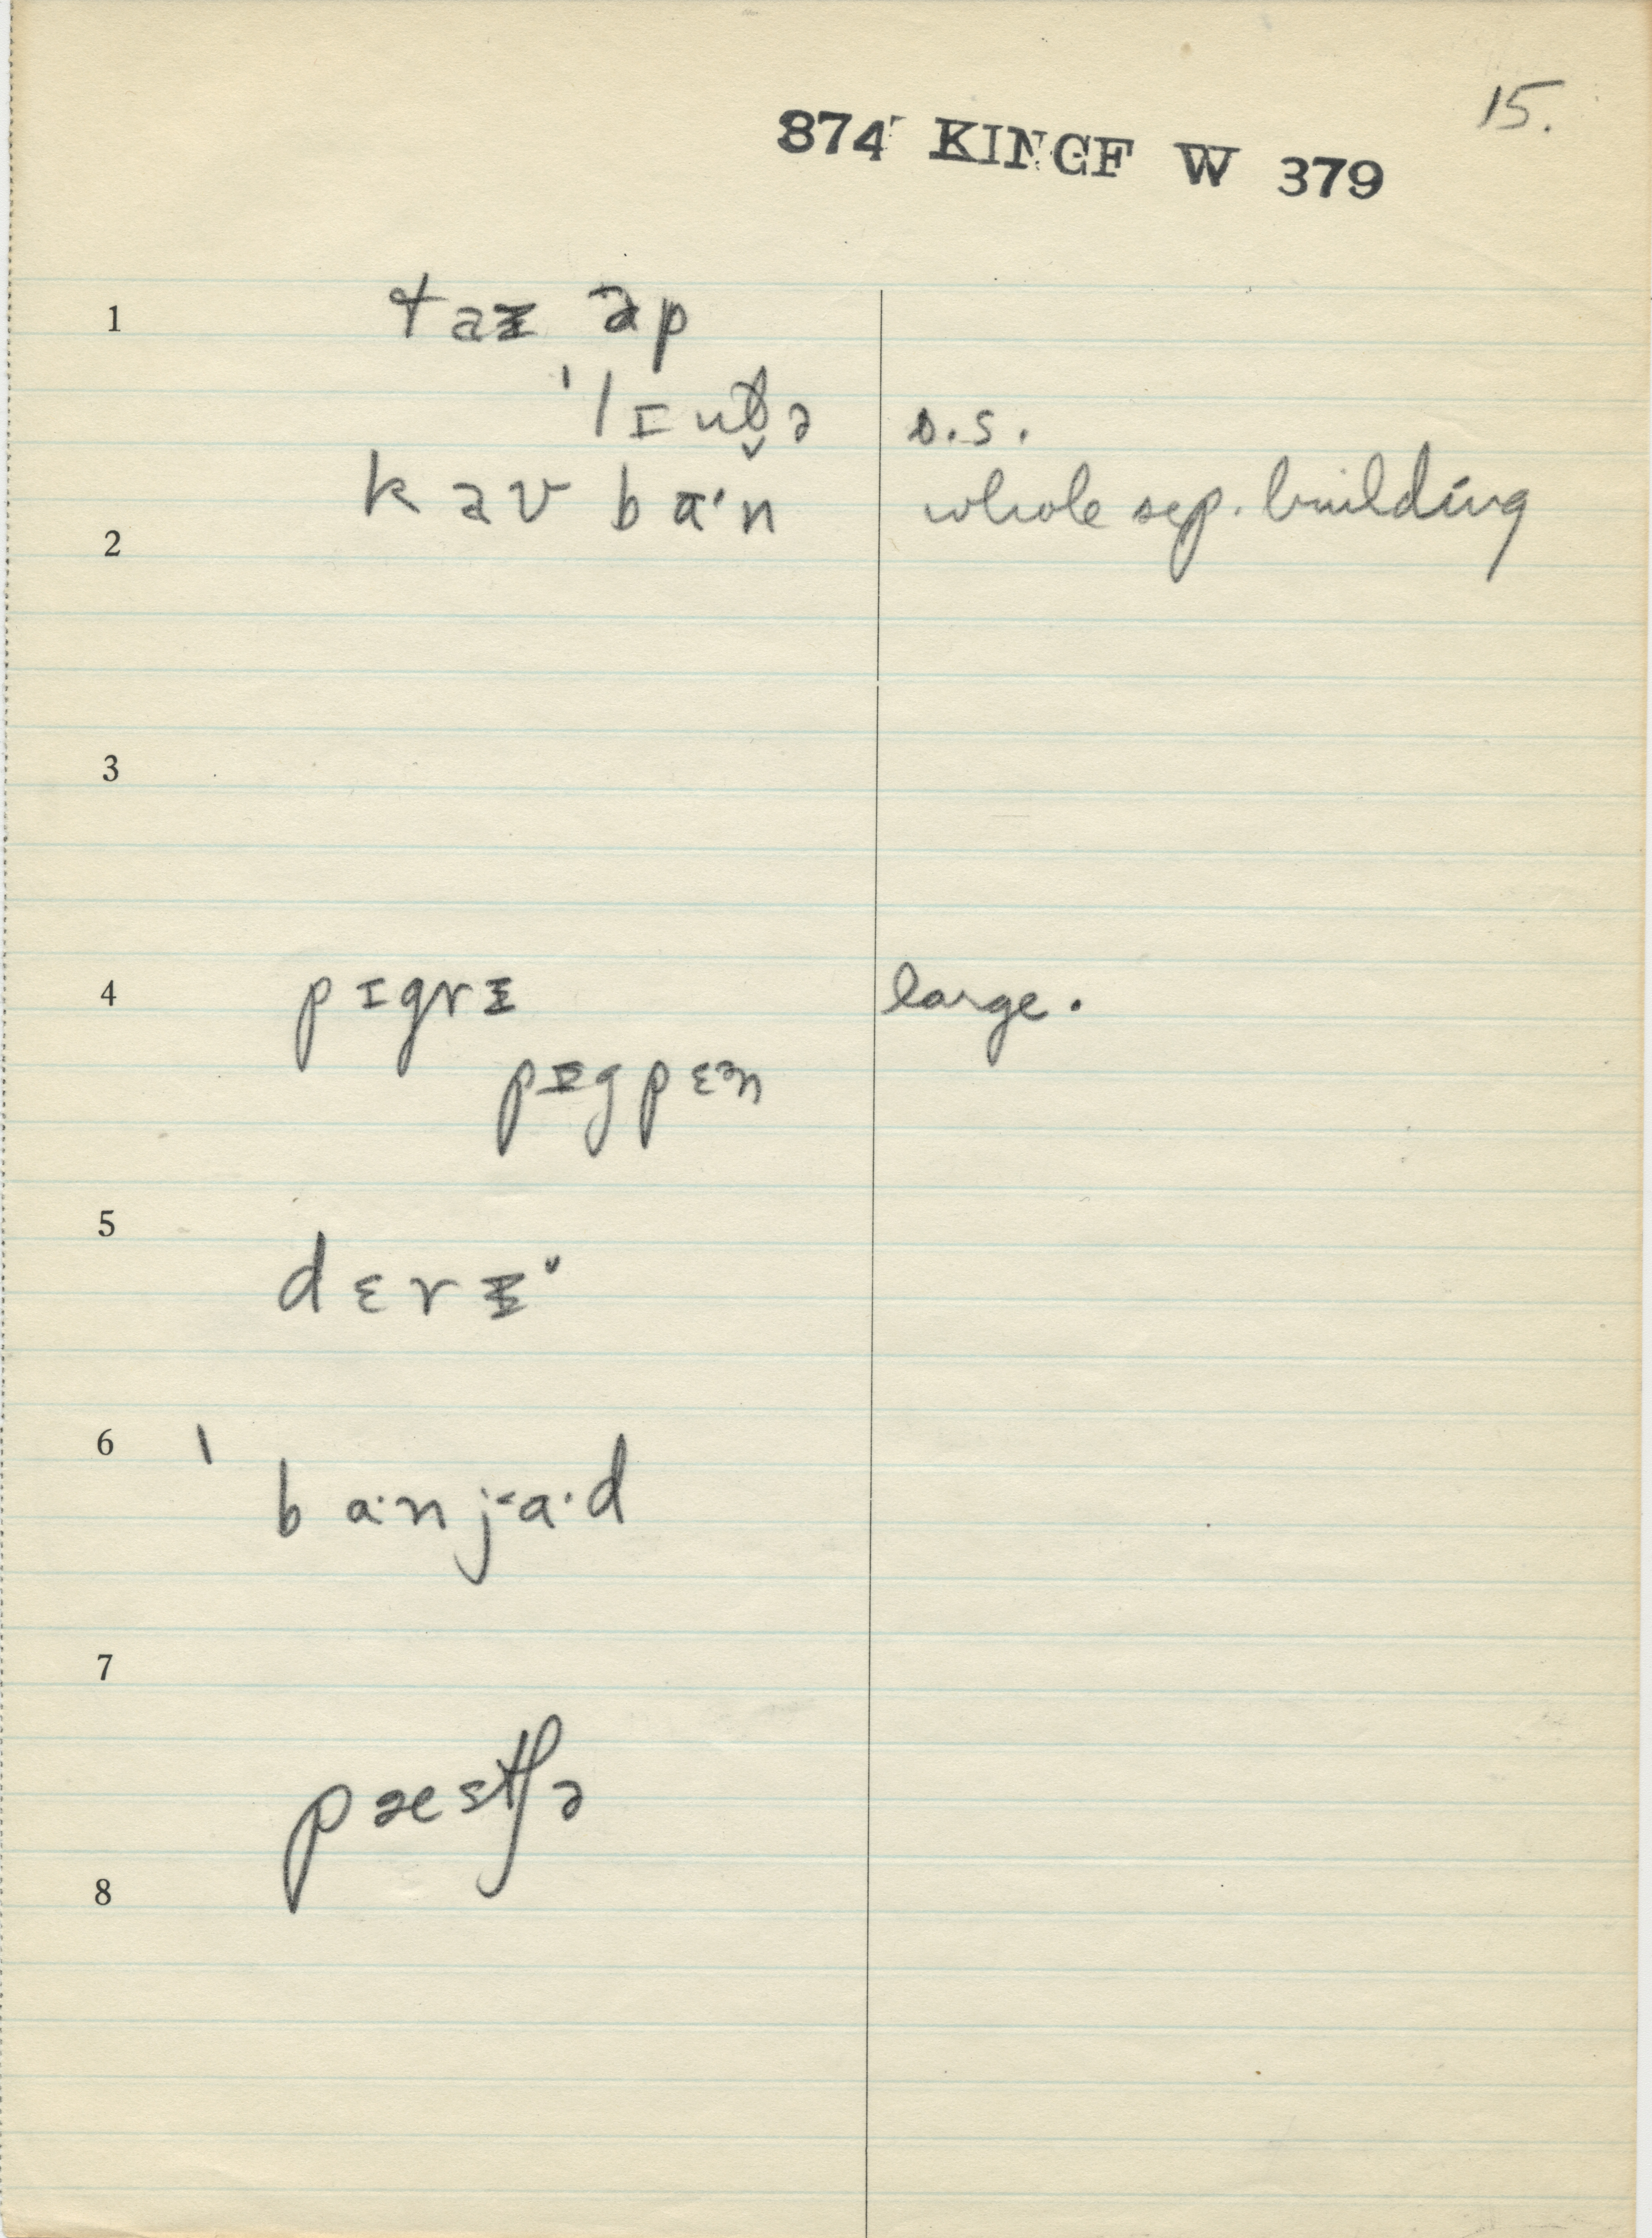 15.
874 KINGF W 379
1 taɪ əp
ˈlɪntə s.s.
kav ba·n whole sep. building
2
3
4 pɪgrɪ large.
pɪgpɛən
5
dɛrɪ
6 ˈba·nja·d
7
pæstʃə
8